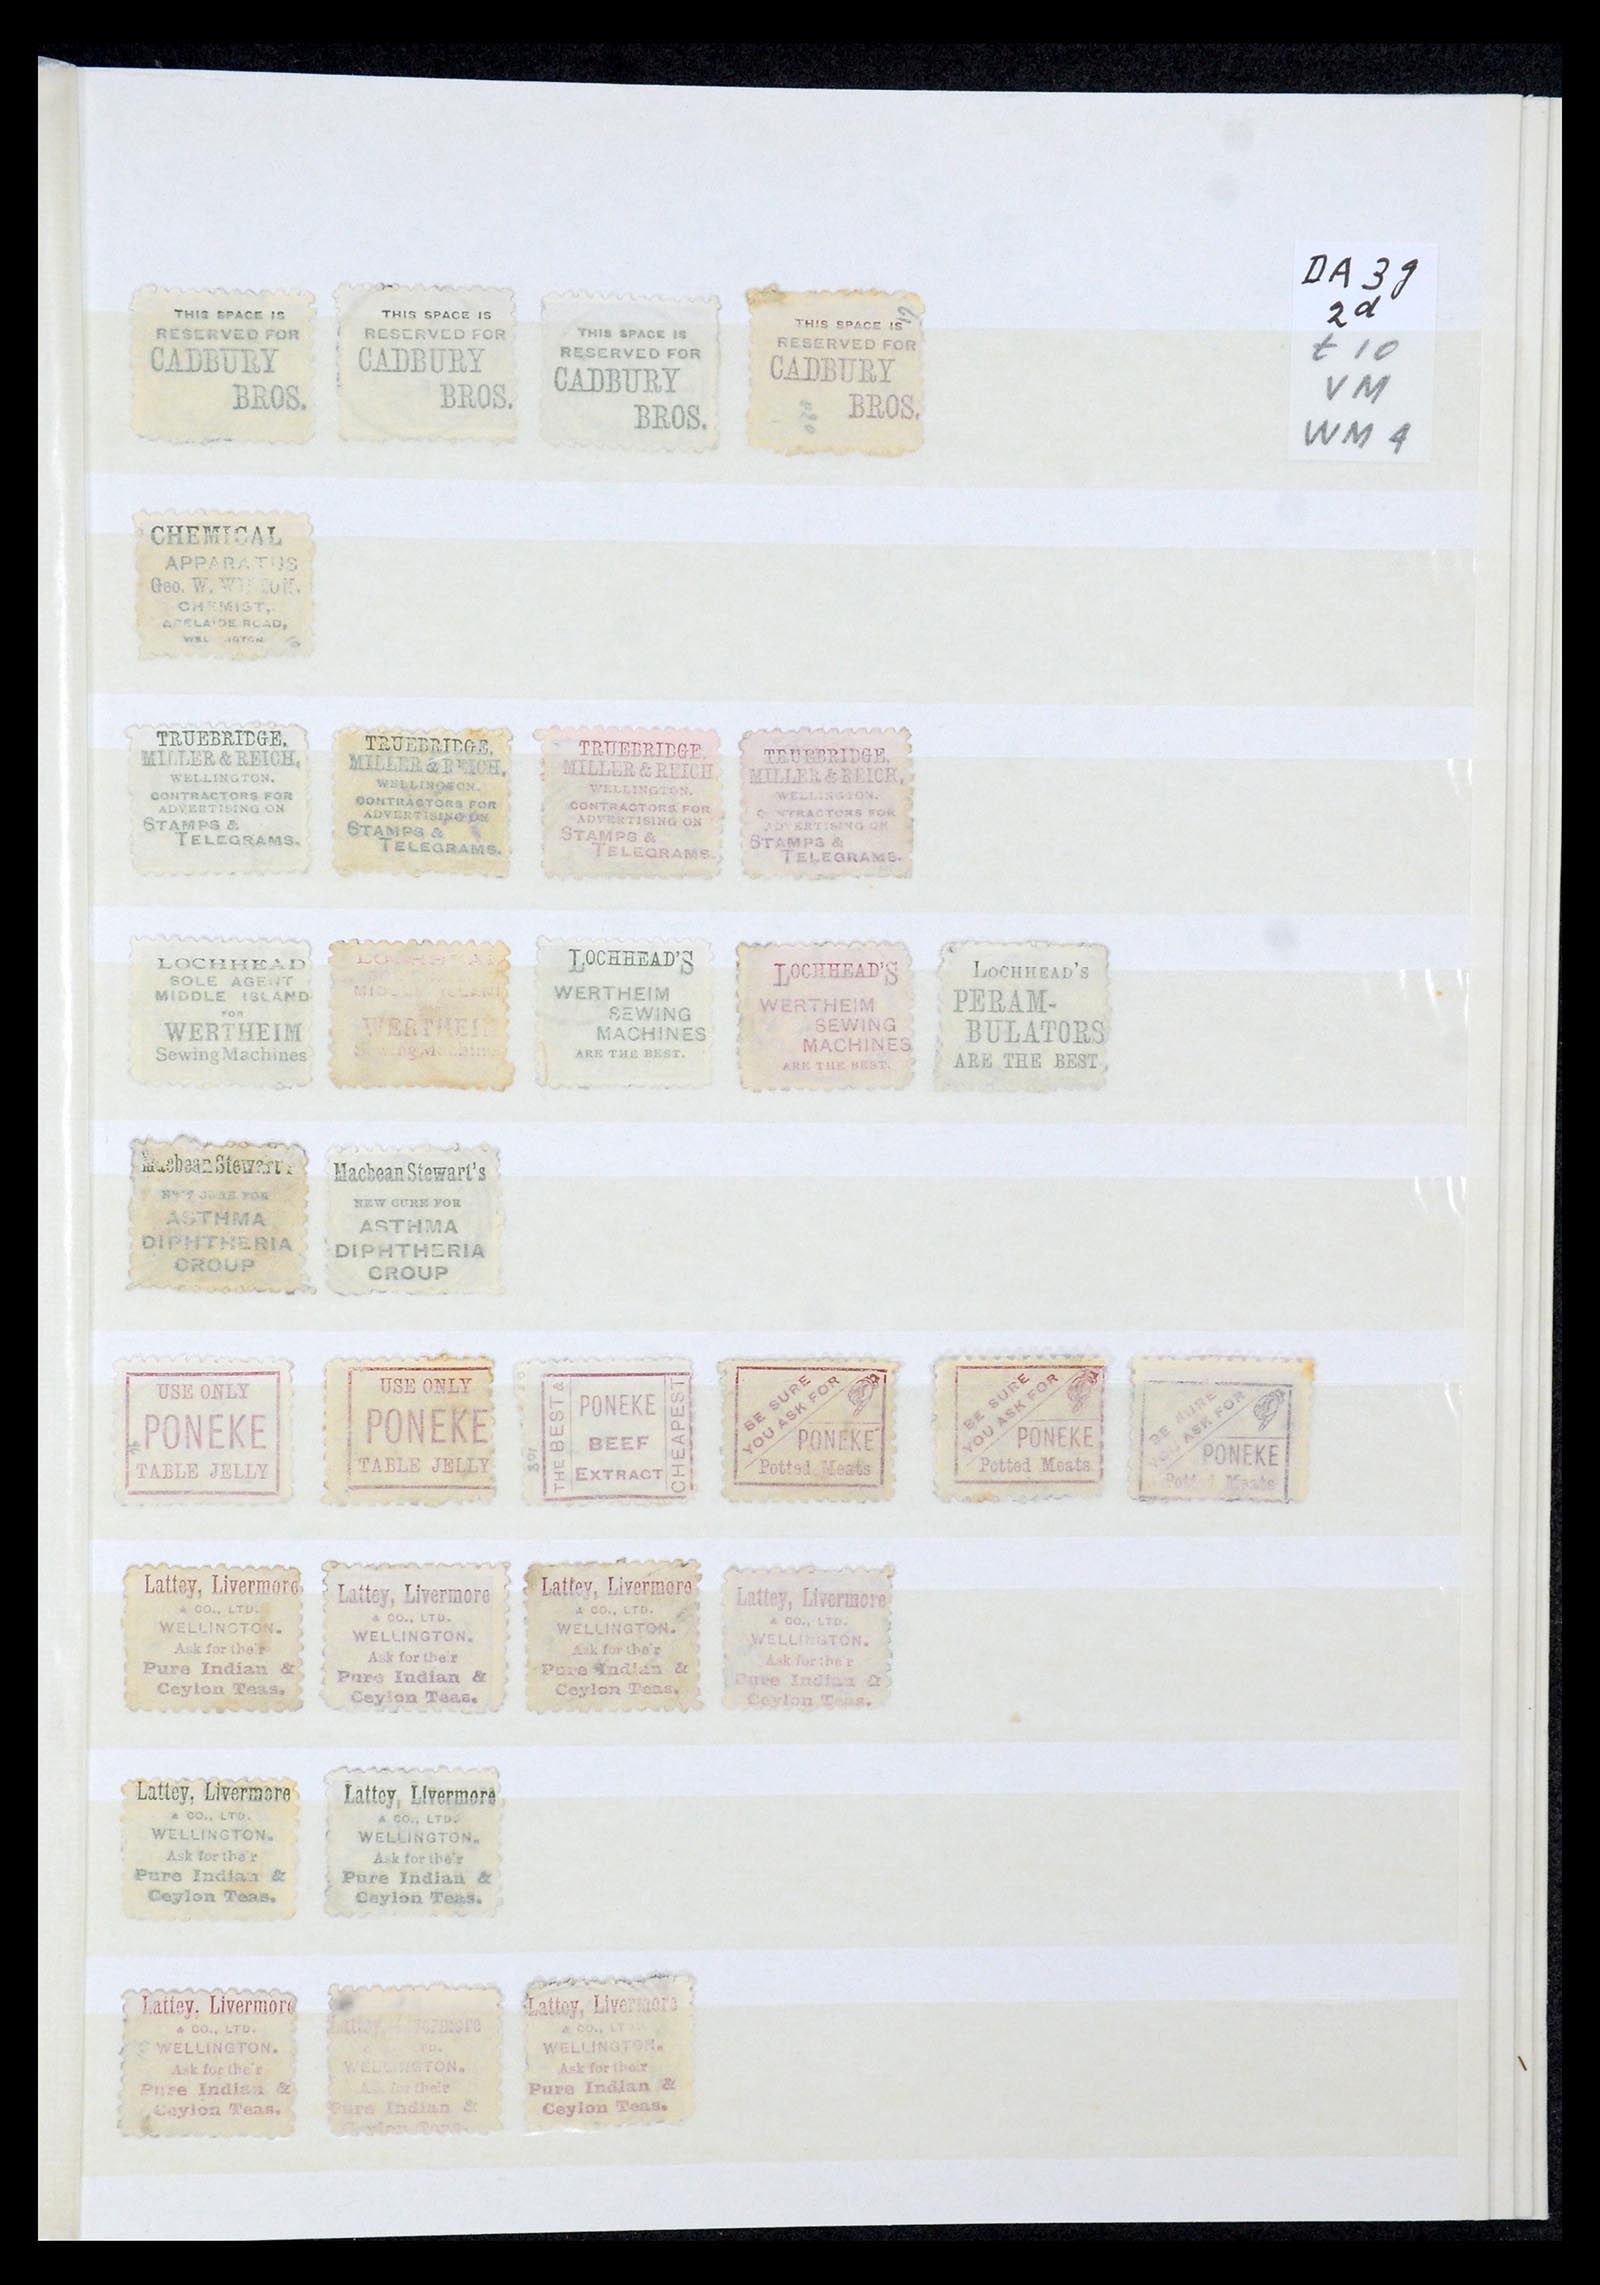 THIS SPACE IS
RESERVED FOR
CADBURY
BROS.
THIS SPACE IS
RESERVED FOR
CADBURY
BROS.
THIS SPACE IS
RESERVED FOR
CADBURY
BROS.
THIS SPACE IS
RESERVED FOR
CADBURY
BROS.
DA 3g
2d
t 10
VM
WM 4
CHEMICAL
APPARATUS
Geo. W.
CHEMIST,
ADELAIDE ROAD,
WELLINGTON
TRUEBRIDGE,
MILLER & REICH,
WELLINGTON.
CONTRACTORS FOR
ADVERTISING ON
STAMPS &
TELEGRAMS.
TRUEBRIDGE,
MILLER & REICH,
WELLINGTON.
CONTRACTORS FOR
ADVERTISING ON
STAMPS &
TELEGRAMS.
TRUEBRIDGE,
MILLER & REICH
WELLINGTON.
CONTRACTORS FOR
ADVERTISING ON
STAMPS &
TELEGRAMS.
TRUEBRIDGE,
MILLER & REICH,
WELLINGTON.
CONTRACTORS FOR
ADVERTISING ON
STAMPS &
TELEGRAMS.
LOCHHEAD
SOLE AGENT
MIDDLE ISLAND
FOR
WERTHEIM
Sewing Machines
LOCHHEAD
MIDDLE ISLAND
WERTHEIM
Sewing Machines
LOCHHEAD'S
WERTHEIM
SEWING
MACHINES
ARE THE BEST.
LOCHHEAD'S
WERTHEIM
SEWING
MACHINES
ARE THE BEST.
LOCHHEAD'S
PERAM-
BULATORS
ARE THE BEST
Macbean Stewart's
NEW CURE FOR
ASTHMA
DIPHTHERIA
CROUP
Macbean Stewart's
NEW CURE FOR
ASTHMA
DIPHTHERIA
CROUP
USE ONLY
PONEKE
TABLE JELLY
USE ONLY
PONEKE
TABLE JELLY
THE BEST &
PONEKE
BEEF
EXTRACT
CHEAPEST
BE SURE
YOU ASK FOR
PONEKE
Potted Meats
BE SURE
YOU ASK FOR
PONEKE
Potted Meats
BE SURE
YOU ASK FOR
PONEKE
Potted Meats
Lattey, Livermore
& CO., LTD.
WELLINGTON.
Ask for their
Pure Indian &
Ceylon Teas.
Lattey, Livermore
& CO., LTD.
WELLINGTON.
Ask for their
Pure Indian &
Ceylon Teas.
Lattey, Livermore
& CO., LTD.
WELLINGTON.
Ask for their
Pure Indian &
Ceylon Teas.
Lattey, Livermore
& CO., LTD.
WELLINGTON.
Ask for their
Pure Indian &
Ceylon Teas.
Lattey, Livermore
& CO., LTD.
WELLINGTON.
Ask for their
Pure Indian &
Ceylon Teas.
Lattey, Livermore
& CO., LTD.
WELLINGTON.
Ask for their
Pure Indian &
Ceylon Teas.
Lattey, Livermore
& CO., LTD.
WELLINGTON.
Ask for their
Pure Indian &
Ceylon Teas.
Lattey, Livermore
LTD.
WELLINGTON.
Ask for their
Pure Indian &
Ceylon Teas.
Lattey, Livermore
& CO., LTD.
WELLINGTON.
Ask for their
Pure Indian &
Ceylon Teas.